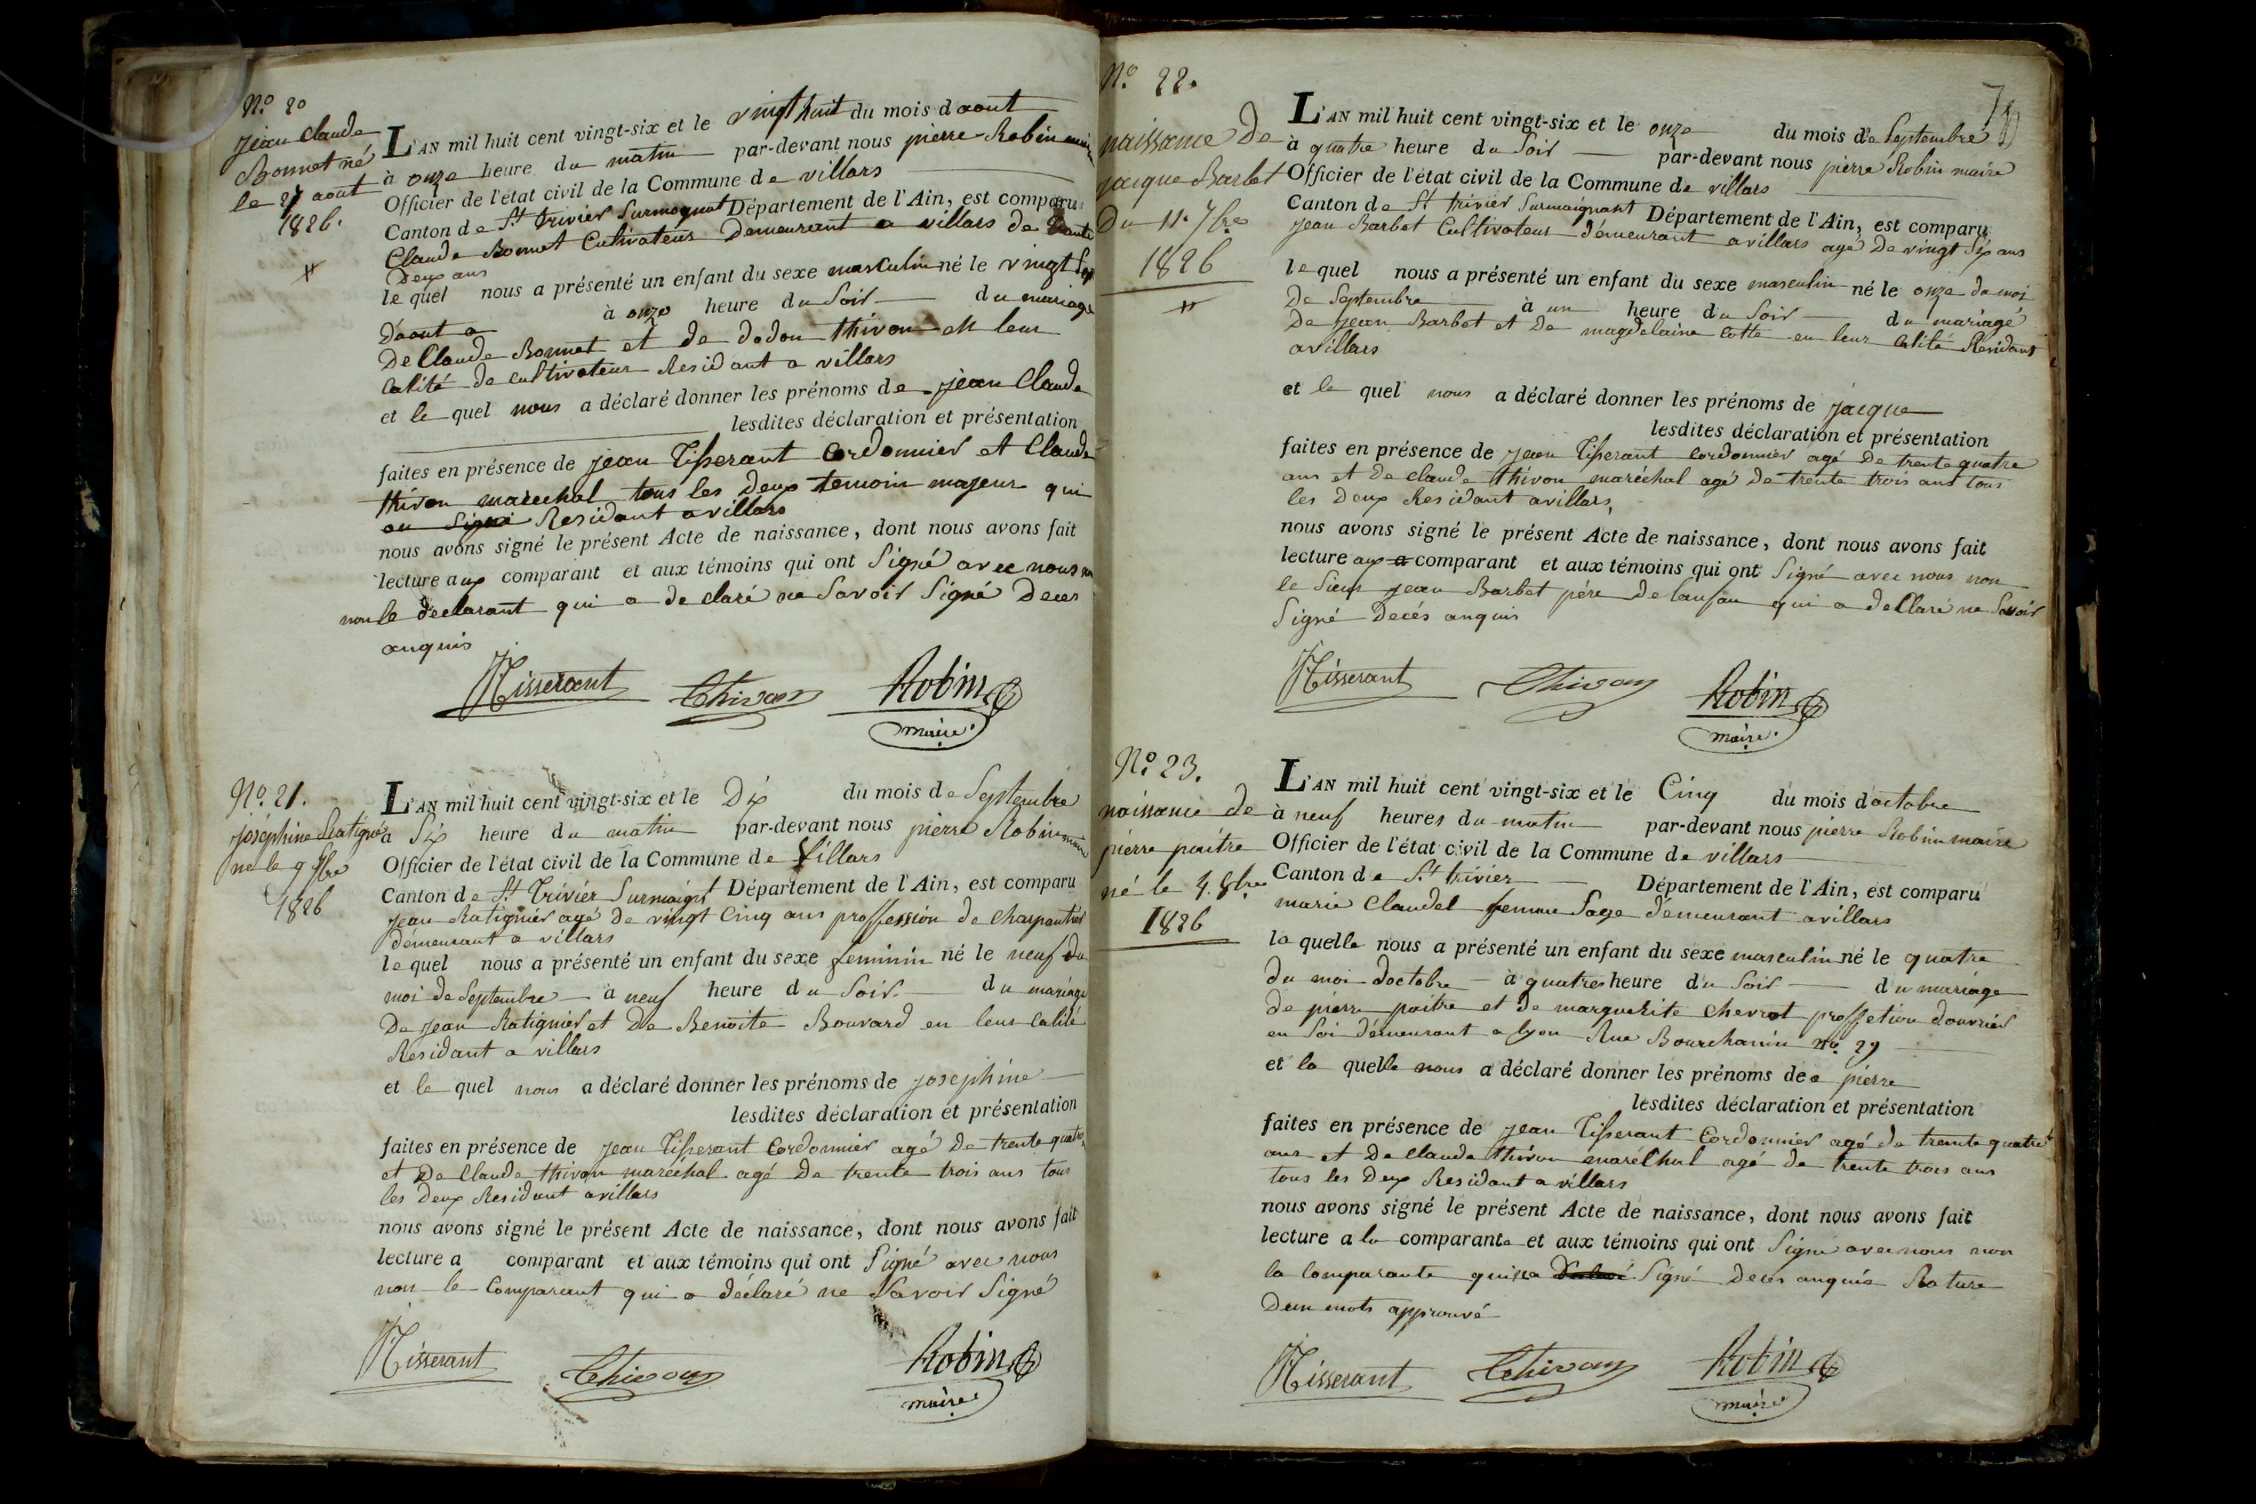 N.º 20
jean Claude
Bonnet né
le 27 aout
1826.
L'AN mil huit cent vingt-six et le vingt huit du mois d aout
à onze heure du matin par-devant nous pierre Robin maire
Officier de l'état civil de la Commune de villars
Canton de St trivier Surmognat Département de l'Ain, est comparu
Claude Bonnet Cultivateur Demeurant a villars de trante
Deux ans
le quel nous a présenté un enfant du sexe masculin né le vingt Sept
D'aout a à onze heure du Soir du mariage
De Claude Bonnet et de dodon thivon en leur
calité de cultivateur Residant a villars
et le quel nous a déclaré donner les prénoms de jean Claude
lesdites déclaration et présentation
faites en présence de jean Tisserant Cordonnier et Claude
thivon marechal tous les deux temoin majeur qui
on Signé Residant a villars
nous avons signé le présent Acte de naissance, dont nous avons fait
lecture aux comparant et aux témoins qui ont Signé avec nous non
non le declarant qui a declaré ne Savoir Signé Deces
anquis
JTisserant Thivon Robin
maire
N.º 21.
joséphine Ratignié
né le 9 7bre
1826
L'AN mil huit cent vingt-six et le Dix du mois de Septembre
à Six heure du matin par-devant nous pierre Robin maire
Officier de l'état civil de la Commune de Villars
Canton de St Trivier Surmoignt Département de l'Ain, est comparu
jean Ratignier agé de vingt Cinq ans proffession de charpantier
démeurant a villars
le quel nous a présenté un enfant du sexe feminin né le neuf du
moi de Septembre à neuf heure du Soir. du mariage
De jean Ratignier et De Benoite Bouvard en leur Calité
Residant a villars
et le quel nous a déclaré donner les prénoms de josephine
lesdites déclaration et présentation
faites en présence de jean Tisserant Cordonnier agé De trente quatre
et De Claude thivon maréchal agé De trente trois ans tous
les deux Residant a villars
nous avons signé le présent Acte de naissance, dont nous avons fait
lecture a comparant et aux témoins qui ont Signé avec nous
non le Comparant qui a déclaré ne Savoir Signé
JTisserant Thivon Robin
maire
N.º 22.
naissance de
jacque Barbet
Du 11. 7bre
1826
L'AN mil huit cent vingt-six et le onze du mois de Septembre
à quatre heure du Soir par-devant nous pierre Robin maire
Officier de l'état civil de la Commune de villars
Canton de St trivier Surmoignant Département de l'Ain, est comparu
jean Barbet Cultivateur démeurant a villars agé De vingt Six ans
le quel nous a présenté un enfant du sexe masculin né le onze du moi
De Septembre à un heure du Soir du mariage
De jean Barbet et De magdelaine Cotte en leur calité Residant
a villars
et le quel nous a déclaré donner les prénoms de jacque
lesdites déclaration et présentation
faites en présence de jean Tisserant Cordonnier agé De trente quatre
ans et De claude thivon maréchal agé De trente trois ans tous
les Deux Residant a villars,
nous avons signé le présent Acte de naissance, dont nous avons fait
lecture aux a comparant et aux témoins qui ont Signé avec nous non
le Sieur jean Barbet pére de lanfan qui a declaré ne Savoir
Signé Decés anquis
JTisserant Thivon Robin
maire.
N.º 23.
naissance de
pierre paitre
né le 4. 8bre
1826
L'AN mil huit cent vingt-six et le Cinq du mois d'octobre
à neuf heures du matin par-devant nous pierre Robin maire
Officier de l'état civil de la Commune de villars
Canton de St trivier Département de l'Ain, est comparu
marie Claudel femme Sage démeurant a villars
la quelle nous a présenté un enfant du sexe masculin né le quatre
du moi doctobre à quatres heure du Soir du mariage
de pierre paitre et de marguerite chevrot proffetion douvrier
en Soi démeurant a lyon Rue Bourchanin no. 29
et la quelle nous a déclaré donner les prénoms de pierre
lesdites déclaration et présentation
faites en présence de jean Tisserant Cordonnier agé de trente quatre
ans et De claude thivon maréchal agé de trente trois ans
tous les Deux Residant a villars
nous avons signé le présent Acte de naissance, dont nous avons fait
lecture a la comparante et aux témoins qui ont Signé avec nous non
la Comparante Signé Deces anquis Rature
Dun mots approuvé
JTisserant Thivon Robin
maire